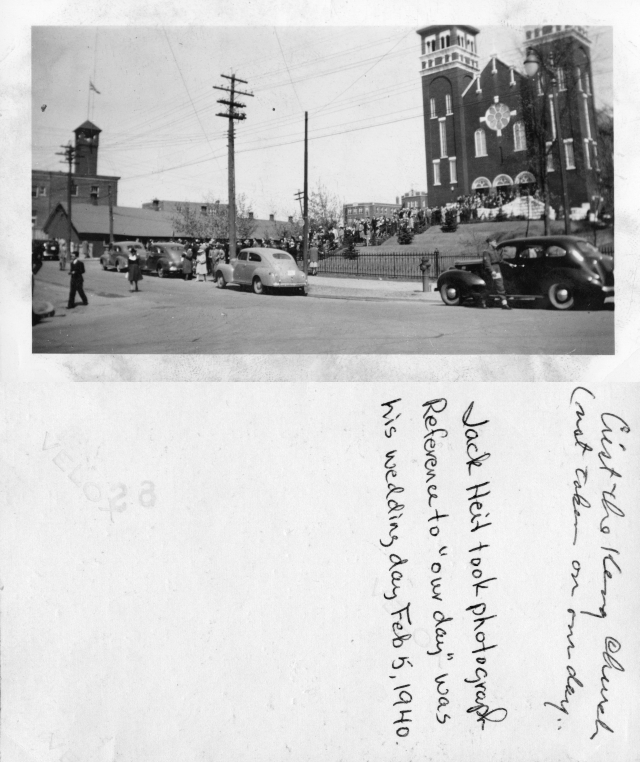 Crist the King Church
(not taken on our day"
Jack Heit took photograph
Reference to "our day" was
his wedding day Feb 5, 1940.
VELOX